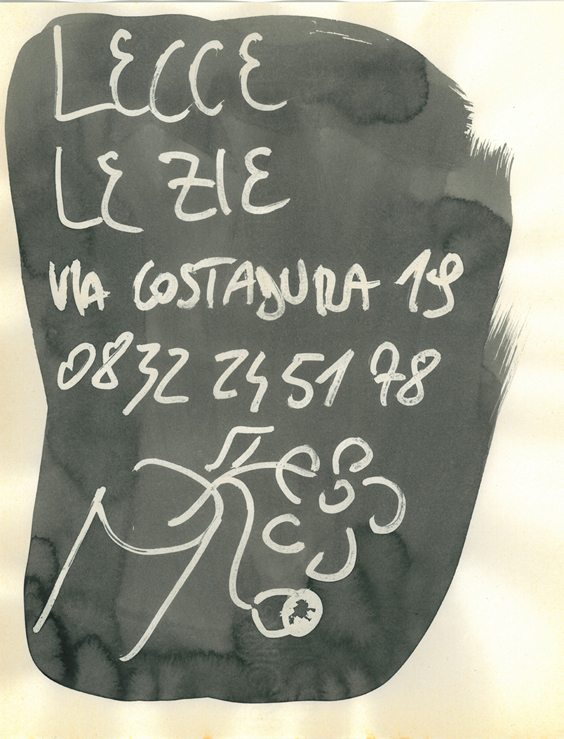 LECCE
LE ZIE
VIA COSTADURA 19
0832 245178